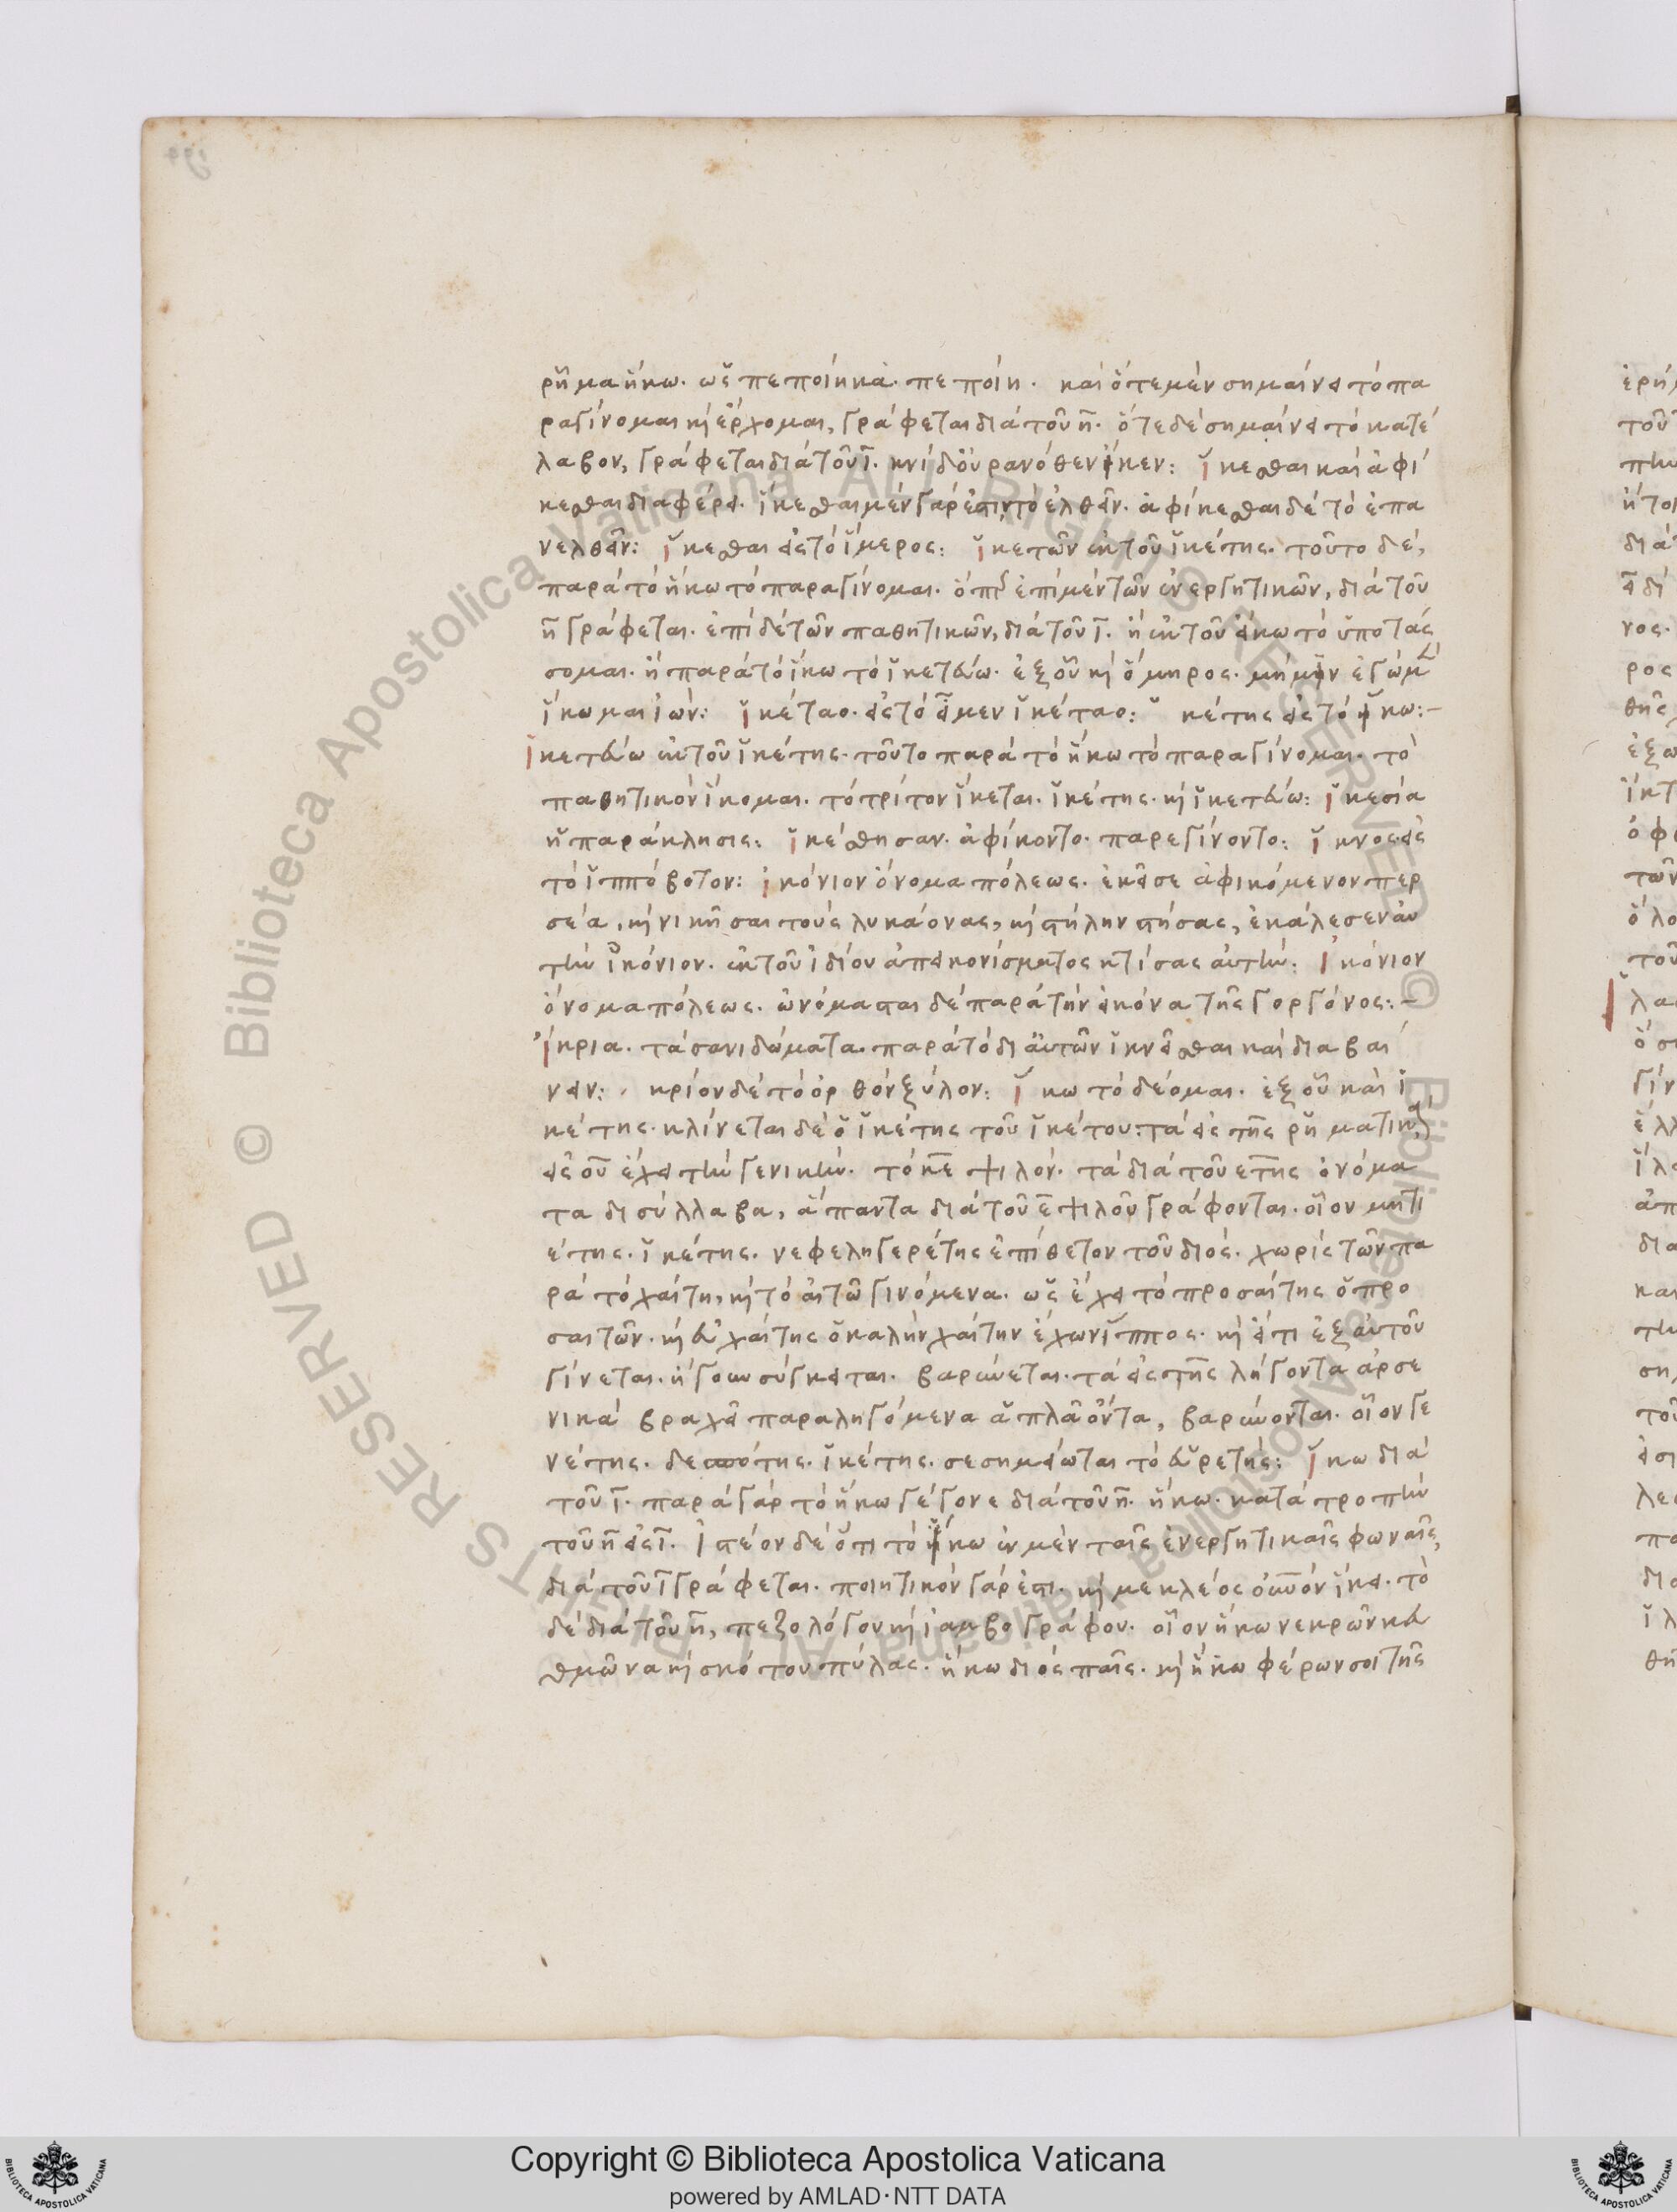 ῥῆμα ἥκω. ὡς πεποίηκα. πεποίη. καὶ ὅτε μὲν σημαίνει τὸ πα
ραγίνομαι καὶ ἔρχομαι, γράφεται διὰ τοῦ η. ὅτε δὲ σημαίνει τὸ κατέ
λαβον, γράφεται διὰ τοῦ ι. οὐρανόθεν ἵκεν: ἵκεσθαι καὶ ἀφί
κεσθαι διαφέρει. ἵκεσθαι μὲν γάρ ἐστιν τὸ ἐλθεῖν. ἀφίκεσθαι δὲ τὸ ἐπα
νελθεῖν: ἵκεσθαι εἰς τὸ ἵμερος: ἱκετῶν ἐκ τοῦ ἱκέτης. τοῦτο δέ,
παρὰ τὸ ἥκω τὸ παραγίνομαι. ὅπερ ἐπὶ μὲν τῶν ἐνεργητικῶν, διὰ τοῦ
η γράφεται. ἐπὶ δὲ τῶν παθητικῶν, διὰ τοῦ ι. ἢ ἐκ τοῦ εἴκω τὸ ὑποτάς
σομαι. ἢ παρὰ τὸ ἵκω τὸ ἱκετεύω. ἐξ οὗ καὶ ὅμηρος.
ἵκωμαι ἰών: ἱκέταο. εἰς τὸ εἷμεν ἱκέταο: κέτης εἰς τὸ ἵκω:–
ἱκετεύω ἐκ τοῦ ἱκέτης. τοῦτο παρὰ τὸ ἥκω τὸ παραγίνομαι. τὸ
παθητικὸν ἵκομαι. τὸ τρίτον ἵκεται. ἱκέτης. καὶ ἱκετεύω: ἱκεσία
ἡ παράκλησις: ἱκέσθησαν. ἀφίκοντο. παρεγίνοντο: ἵκνος εἰς
τὸ ἱππόβοτον: ἰκόνιον ὄνομα πόλεως. ἐκεῖσε ἀφικόμενον περ
σέα, καὶ νικῆσαι τοὺς λυκάονας, καὶ στήλην στήσας, ἐκάλεσεν αὐ
τὴν ἰκόνιον. ἐκ τοῦ ἰδίου ἀπεικονίσματος κτίσας αὐτήν: ἰκόνιον
ὄνομα πόλεως. ὠνόμασται δὲ παρὰ τὴν εἰκόνα τῆς γοργόνος:–
ἴκρια. τὰ σανιδώματα. παρὰ τὸ δι' αὐτῶν ἱκνεῖσθαι καὶ διαβαί
νειν: κρίον δὲ τὸ ὀρθὸν ξύλον: ἵκω τὸ δέομαι. ἐξ οὗ καὶ ἱ
κέτης. κλίνεται δὲ ὁ ἱκέτης τοῦ ἱκέτου: τὰ εἰς της ῥηματικὰ
εἰς ου ἔχει τὴν γενικήν. τὸ κε ψιλόν. τὰ διὰ τοῦ ετης ὀνόμα
τα δισύλλαβα, ἅπαντα διὰ τοῦ ε ψιλοῦ γράφονται. οἷον μητι
έτης. ἱκέτης. νεφεληγερέτης ἐπίθετον τοῦ διός. χωρὶς τῶν πα
ρὰ τὸ χαίτη, καὶ τὸ αἰτῶ γινόμενα. ὡς ἔχει τὸ προσαίτης ὁ προ
σαιτῶν. καὶ εὐχαίτης ὁ καλὴν χαίτην ἔχων ἵππος. καὶ εἴ τι ἐξ αὐτοῦ
γίνεται. ἤγουν σύγκειται. βαρύνεται. τὰ εἰς της λήγοντα ἀρσε
νικὰ βραχεῖ παραληγόμενα ἁπλᾶ ὄντα, βαρύνονται. οἷον γε
νέτης. δεσπότης. ἱκέτης. σεσημείωται τὸ εὑρετής: ἵκω διὰ
τοῦ ι. παρὰ γὰρ τὸ ἥκω γέγονε διὰ τοῦ η. ἥκω. κατὰ τροπὴν
τοῦ η εἰς ι. ἰστέον δὲ ὅτι τὸ ἵκω ἐν μὲν ταῖς ἐνεργητικαῖς φωναῖς,
διὰ τοῦ ι γράφεται. ποιητικὸν γάρ ἐστι. καί με κλέος οἷον ἵκει. τὸ
δὲ διὰ τοῦ η, πεζολόγου καὶ ἰαμβογράφου. οἷον ἥκω νεκρῶν κευ
θμῶνα καὶ σκότου πύλας. ἥκω διὸς παῖς. καὶ ἥκω φέρων σοι τῆς
Copyright © Biblioteca Apostolica Vaticana
powered by AMLAD·NTT DATA